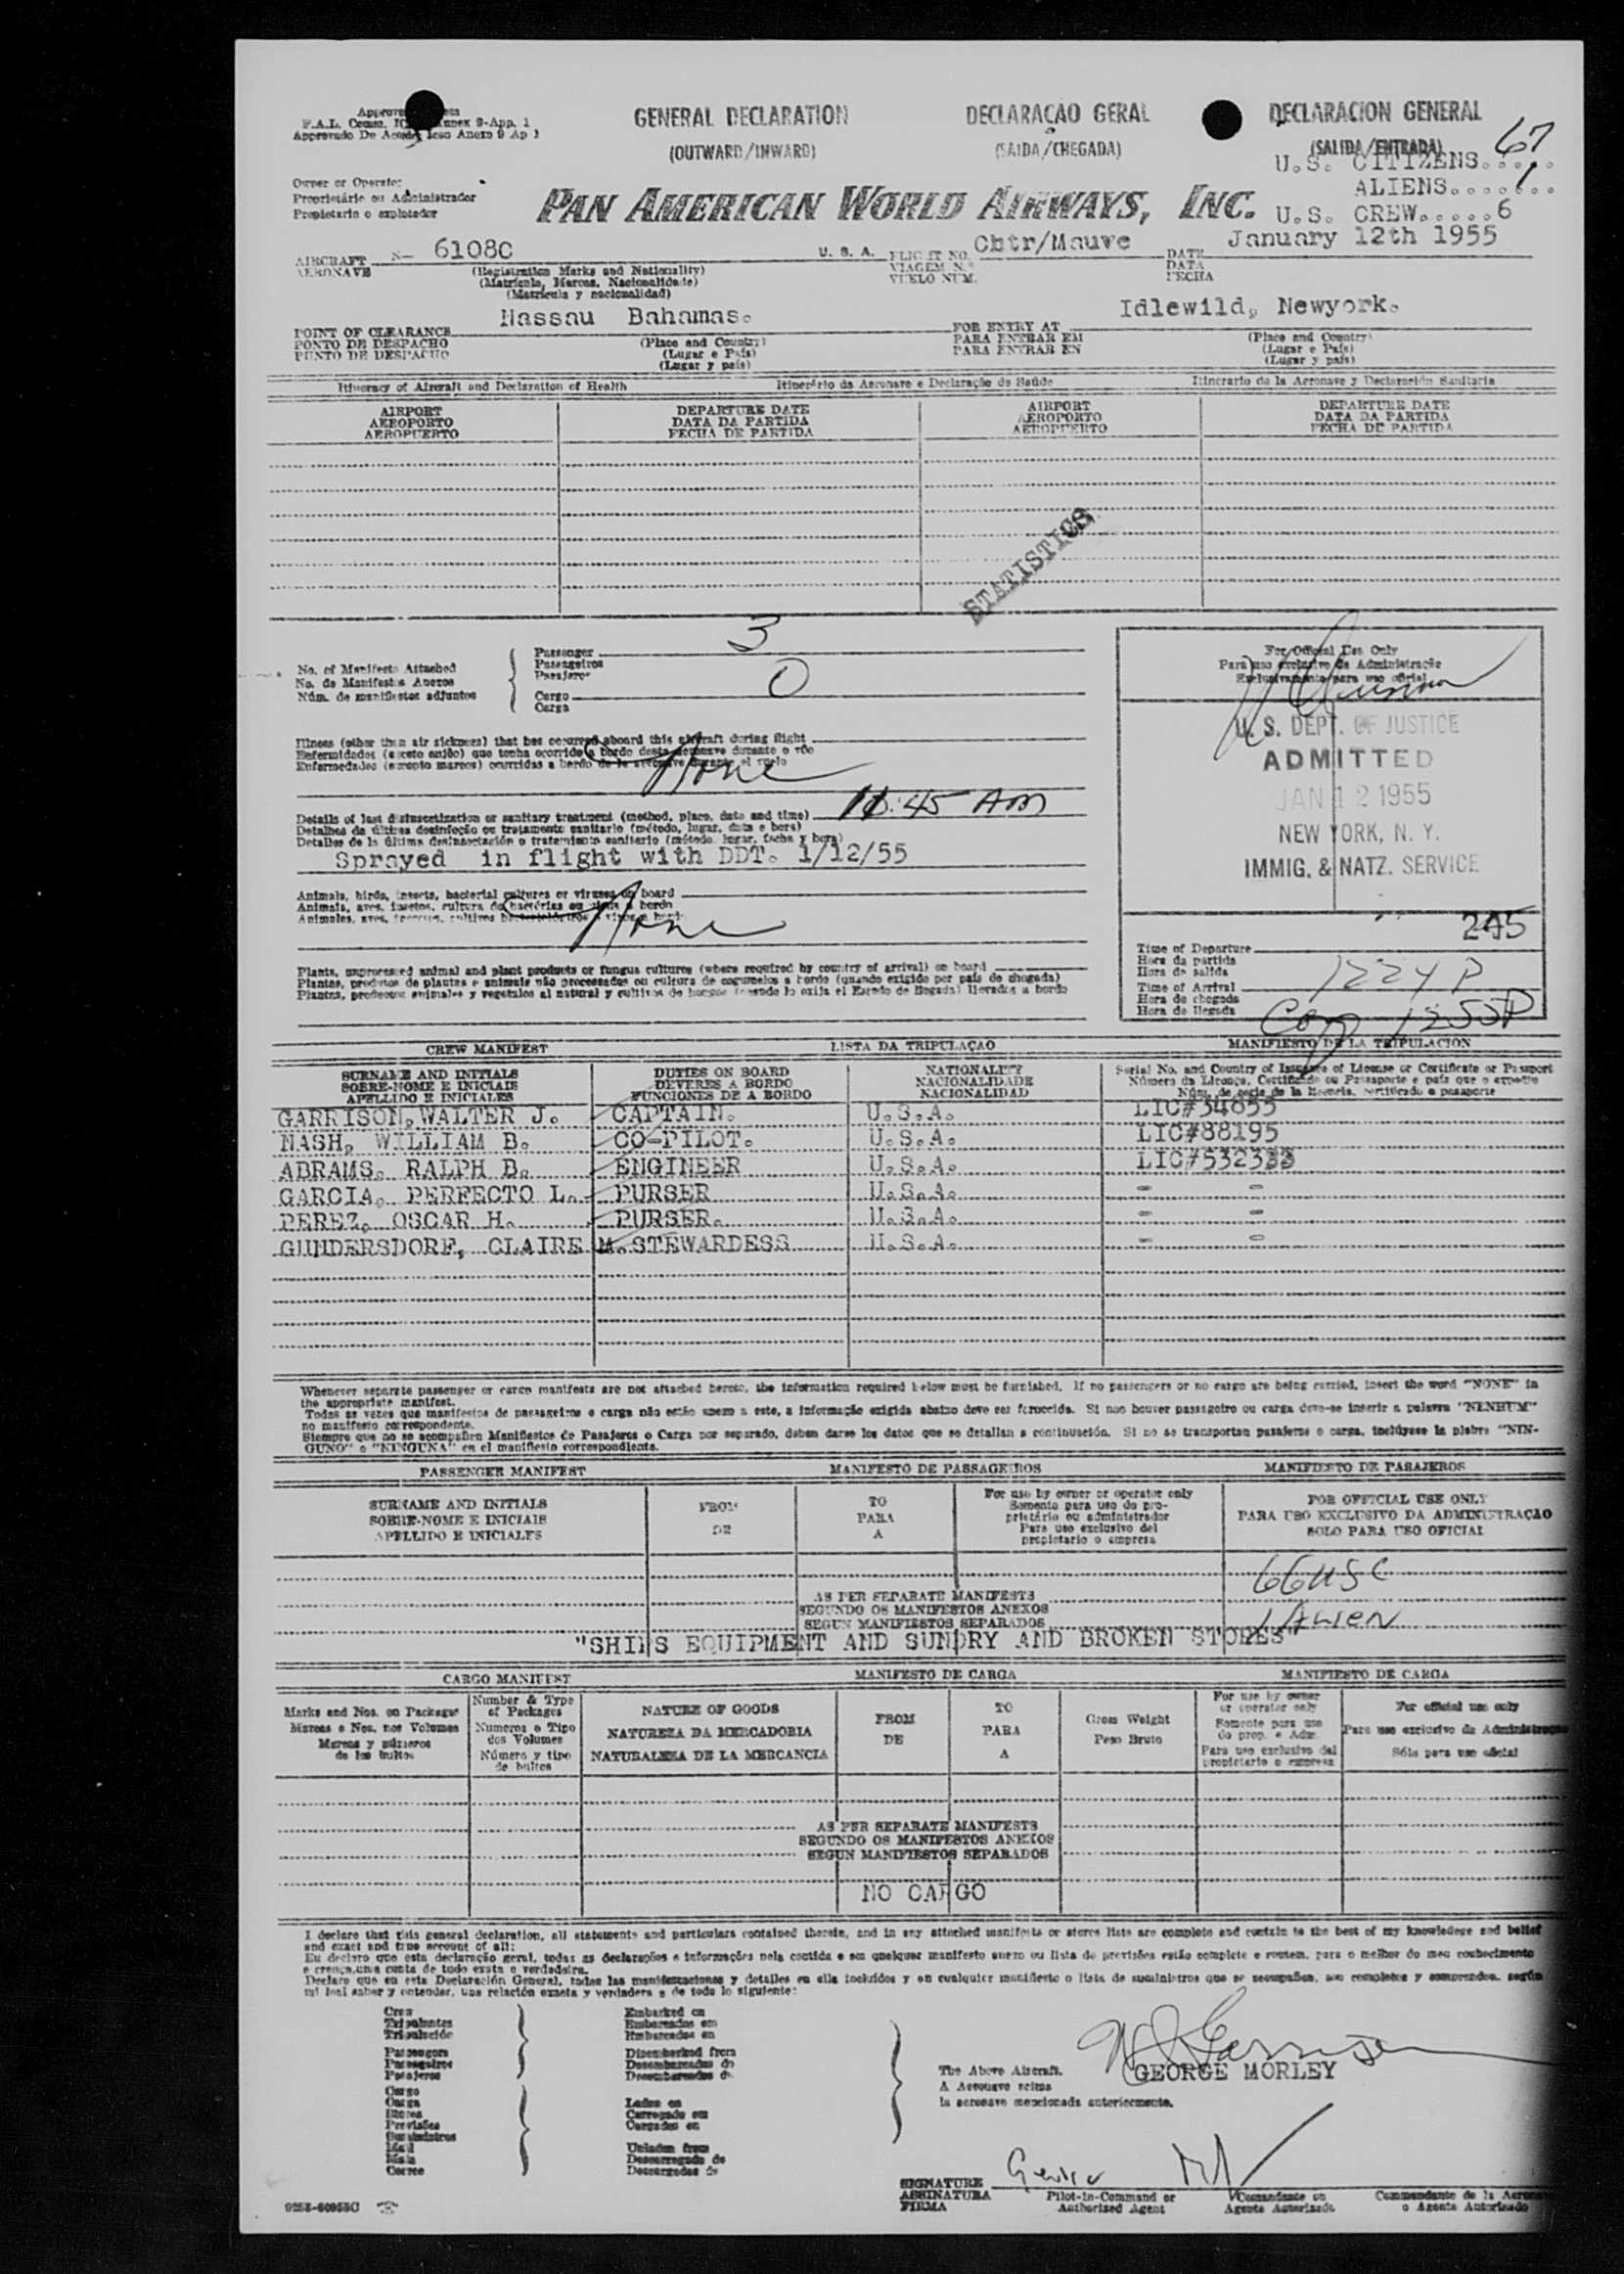 GENERAL DECLARATION
(OUTWARD/INWARD)
DECLARAÇAO GERAL
(SAIDA/CHEGADA)
DECLARACION GENERAL
(SALIDA/ENTRADA)
U.S. CITIZENS..... 67
ALIENS....... 1
U.S. CREW.....6
Owner or Operator
Proprietário ou Administrador
Propietario o explotador
PAN AMERICAN WORLD AIRWAYS, INC.
AIRCRAFT N- 6108C U. S. A. FLIGHT NO. Chtr/Mauve DATE January 12th 1955
AERONAVE
VIAGEM N.º
DATA
VUELO NUM.
FECHA
(Registration Marks and Nationality)
(Matrícula, Marcas, Nacionalidade)
(Matrícula y nacionalidad)
POINT OF CLEARANCE Nassau Bahamas. FOR ENTRY AT Idlewild, Newyork.
PONTO DE DESPACHO
PARA ENTRAR EM
PUNTO DE DESPACHO
PARA ENTRAR EN
(Place and Country)
(Lugar e País)
(Lugar y país)
(Place and Country)
(Lugar e País)
(Lugar y país)
Itinerary of Aircraft and Declaration of Health
Itinerário da Aeronave e Declaração de Saúde
Itinerario de la Aeronave y Declaración Sanitaria
AIRPORT
AEROPORTO
AEROPUERTO
DEPARTURE DATE
DATA DA PARTIDA
FECHA DE PARTIDA
AIRPORT
AEROPORTO
AEROPUERTO
DEPARTURE DATE
DATA DA PARTIDA
FECHA DE PARTIDA
STATISTICS
No. of Manifests Attached
No. de Manifestos Anexos
Núm. de manifiestos adjuntos
Passenger 3
Passageiros
Pasajeros
Cargo 0
Carga
For Official Use Only
Para uso exclusivo da Administração
Exclusivamente para uso oficial
U. S. DEPT. OF JUSTICE
ADMITTED
JAN 12 1955
NEW YORK, N. Y.
IMMIG. & NATZ. SERVICE
Illness (other than air sickness) that has occurred aboard this aircraft during flight
Enfermidades (exceto enjôo) que tenha ocorrido a bordo desta aeronave durante o vôo
Enfermedades (excepto mareos) ocurridas a bordo de la aeronave durante el vuelo
None
Details of last disinsectization or sanitary treatment (method, place, date and time) 11:45 AM
Detalhes da última desinfeção ou tratamento sanitario (método, lugar, data e hora)
Detalles de la última desinsectación o tratamiento sanitario (método, lugar, fecha y hora)
Sprayed in flight with DDT. 1/12/55
Animals, birds, insects, bacterial cultures or viruses on board
Animais, aves, insetos, cultura de bactérias ou virus a bordo
None
Plants, unprocessed animal and plant products or fungus cultures (where required by country of arrival) on board
Plantas, produtos de plantas e animais não processados ou cultura de cogumelos a bordo (quando exigido por país de chegada)
Plantas, productos animales y vegetales al natural y cultivos de hongos (cuando lo exija el Estado de llegada) llevados a bordo
245
Time of Departure
Hora da partida
Hora de salida
Time of Arrival 1224 P
Hora de chegada
Hora de llegada
1255P
CREW MANIFEST
LISTA DA TRIPULAÇAO
MANIFIESTO DE LA TRIPULACION
SURNAME AND INITIALS
SOBRE-NOME E INICIAIS
APELLIDO E INICIALES
DUTIES ON BOARD
DEVERES A BORDO
FUNCIONES DE A BORDO
NATIONALITY
NACIONALIDADE
NACIONALIDAD
Serial No. and Country of Issuance of License or Certificate or Passport
Número da Licença, Certificado ou Passaporte e país que o expediu
Núm. de serie de la licencia, certificado o pasaporte
GARRISON, WALTER J. CAPTAIN. U.S.A. LIC#34655
NASH, WILLIAM B. CO-PILOT. U.S.A. LIC#88195
ABRAMS. RALPH B. ENGINEER U.S.A. LIC#532333
GARCIA. PERFECTO L. PURSER U.S.A. - -
PEREZ. OSCAR H. PURSER. U.S.A. - -
GUNDERSDORF, CLAIRE M. STEWARDESS U.S.A. - -
Whenever separate passenger or cargo manifests are not attached hereto, the information required below must be furnished. If no passengers or no cargo are being carried, insert the word "NONE" in
the appropriate manifest.
Todas as vezes que manifestos de passageiros e carga não estão anexo a este, a informação exigida abaixo deve ser fornecida. Si não houver passageiro ou carga deve-se inserir a palavra "NENHUM"
no manifesto correspondente.
Siempre que no se acompañen Manifiestos de Pasajeros o Carga por separado, deben darse los datos que se detallan a continuación. Si no se transportan pasajeros o carga, inclúyase la plabra "NIN-
GUNO" o "NINGUNA" en el manifiesto correspondiente.
PASSENGER MANIFEST
MANIFESTO DE PASSAGEIROS
MANIFIESTO DE PASAJEROS
SURNAME AND INITIALS
SOBRE-NOME E INICIAIS
APELLIDO E INICIALES
FROM
DE
TO
PARA
A
For use by owner or operator only
Somente para uso do pro-
prietário ou administrador
Para uso exclusivo del
propietario o empresa
FOR OFFICIAL USE ONLY
PARA USO EXCLUSIVO DA ADMINISTRAÇÃO
SOLO PARA USO OFICIAL
66 USC
AS PER SEPARATE MANIFESTS
SEGUNDO OS MANIFESTOS ANEXOS
SEGUN MANIFIESTOS SEPARADOS
1 ALIEN
"SHIPS EQUIPMENT AND SUNDRY AND BROKEN STORES"
CARGO MANIFEST
MANIFESTO DE CARGA
MANIFIESTO DE CARGA
Marks and Nos. on Packages
Marcas e Nos. nos Volumes
Marcas y números
de los bultos
Number & Type
of Packages
Numeros e Tipo
dos Volumes
Número y tipo
de bultos
NATURE OF GOODS
NATUREZA DA MERCADORIA
NATURALEZA DE LA MERCANCIA
FROM
DE
TO
PARA
A
Gross Weight
Peso Bruto
For use by owner
or operator only
Somente para uso
do prop. e Adm.
Para uso exclusivo del
propietario o empresa
For official use only
Para uso exclusivo da Administração
Sólo para uso oficial
AS PER SEPARATE MANIFESTS
SEGUNDO OS MANIFESTOS ANEXOS
SEGUN MANIFIESTOS SEPARADOS
NO CARGO
I declare that this general declaration, all statements and particulars contained therein, and in any attached manifests or stores lists are complete and contain to the best of my knowledge and belief
and exact and true account of all:
Eu declaro que esta declaração geral, todas as declarações e informações nela contida e em qualquer manifesto anexo ou lista de provisões estão complete e contem, para o melhor do meu conhecimento
e crença, uma conta de todo exata e verdadeira.
Declaro que en esta Declaración General, todas las manifestaciones y detalles en ella incluídos y en cualquier manifiesto o lista de suministros que se acompañen, son completos y comprenden, según
mi leal saber y entender, una relación exacta y verdadera a de todo lo siguiente:
Crew
Tripulantes
Tripulación
Passengers
Passageiros
Pasajeros
Cargo
Carga
Stores
Provisões
Suministros
Mail
Mala
Correo
Embarked on
Embarcados em
Embarcados en
Disembarked from
Desembarcados de
Desembarcados de
Laden on
Carregado em
Cargados en
Unladen from
Descarregado de
Descargados de
The Above Aircraft.
A Aeronave acima
la aeronave mencionada anteriormente.
W J Garrison
GEORGE MORLEY
SIGNATURE
ASSINATURA
FIRMA
Pilot-in-Command or
Authorized Agent
Comandante ou
Agente Autorizado
Commandante de la Aeronave
o Agente Autorizado